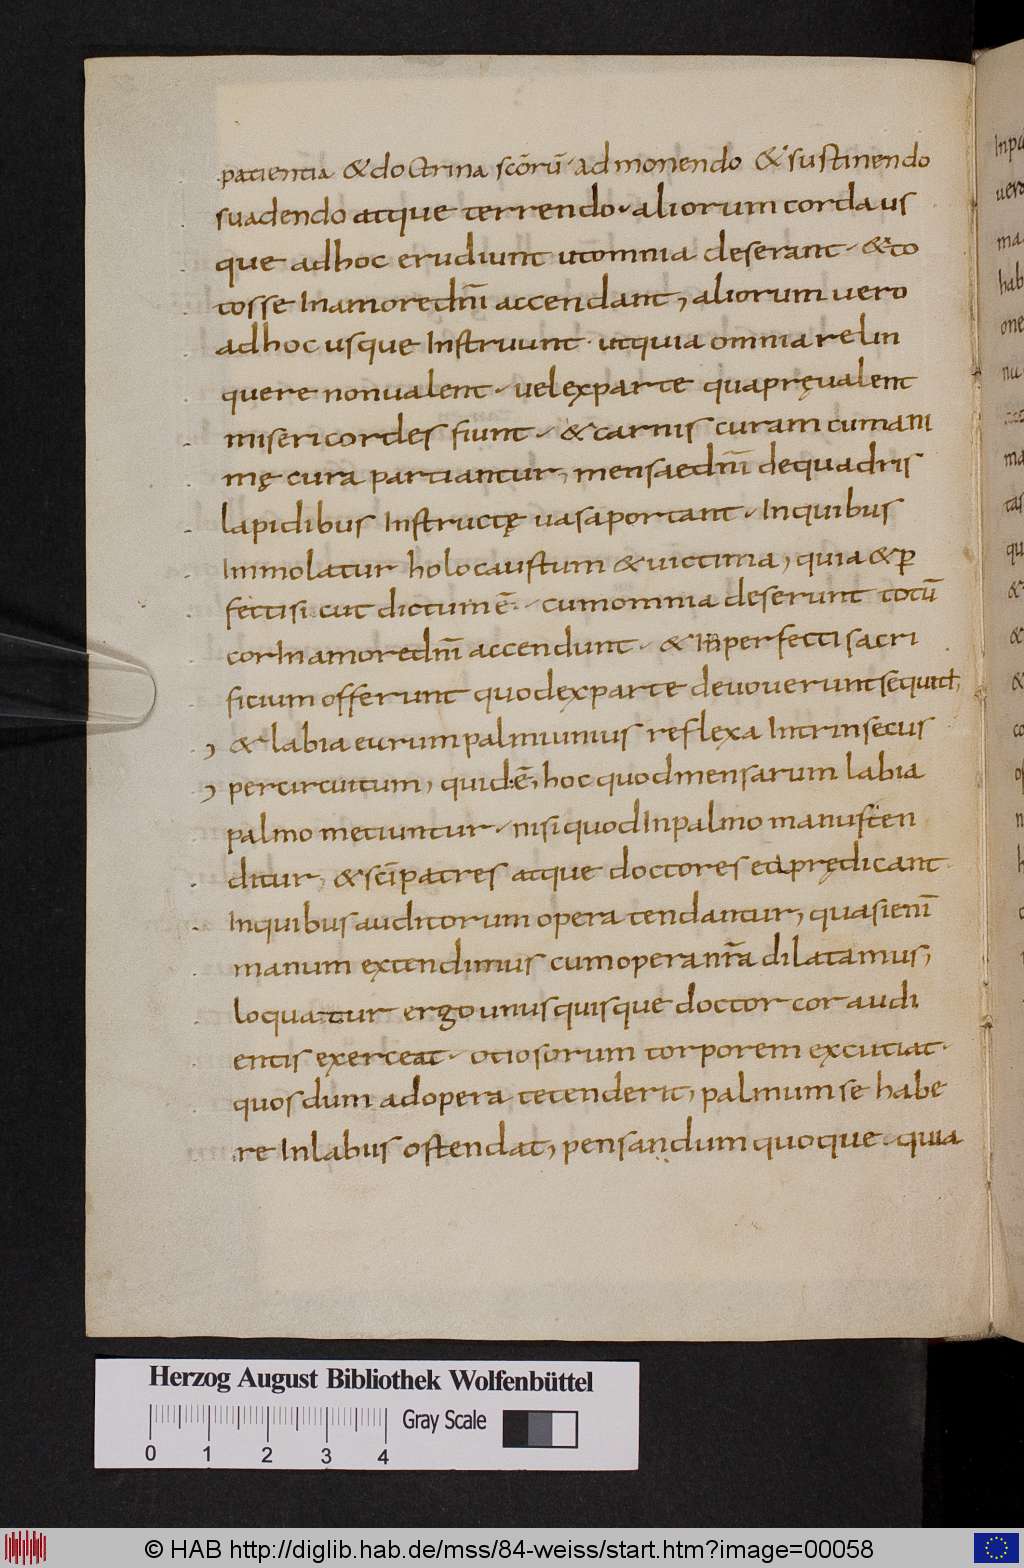 patientia & doctrina scōrū · admonendo & sustinendo
suadendo atque terrendo · aliorum corda us
que adhoc erudiunt utomnia deserant · & to
tosse Inamoredn̄i accendant, aliorum uero
adhoc usque Instruunt · utquia omnia relin
quere nonualent · uelexparte quapręualent
misericordes fiunt · & carnis curam cumani
mę cura partiantur, mensaedn̄i dequadris
lapidibus Instructę uasaportant · Inquibus
Immolatur holocaustum & uictima, quia & p̄
fecti sicut dictum ē · cumomnia deserunt totū
corInamoredn̄i accendunt · & Inperfecti sacri
ficium offerunt quodexparte deuouerunt sequit̄,
, & labia eurum palmi unius reflexa Intrinsecus
, percircuitum, quidē, hoc quodmensarum labia
palmo metiuntur · nisi quodInpalmo manusten
ditur, & scīpatres atque doctores ea prędicant
Inquibus auditorum opera tendantur, quasi enī
manum extendimus cumoperanr̄a dilatamus,
loquatur ergo unusquisque doctor cor audi
entis exerceat · otiosorum torporem excutiat ·
quos dum adopera tetenderit, palmum se habe
re Inlabiis ostendat, pensandum quoque · quia
Herzog August Bibliothek Wolfenbüttel
0 1 2 3 4 Gray Scale
© HAB http://diglib.hab.de/mss/84-weiss/start.htm?image=00058